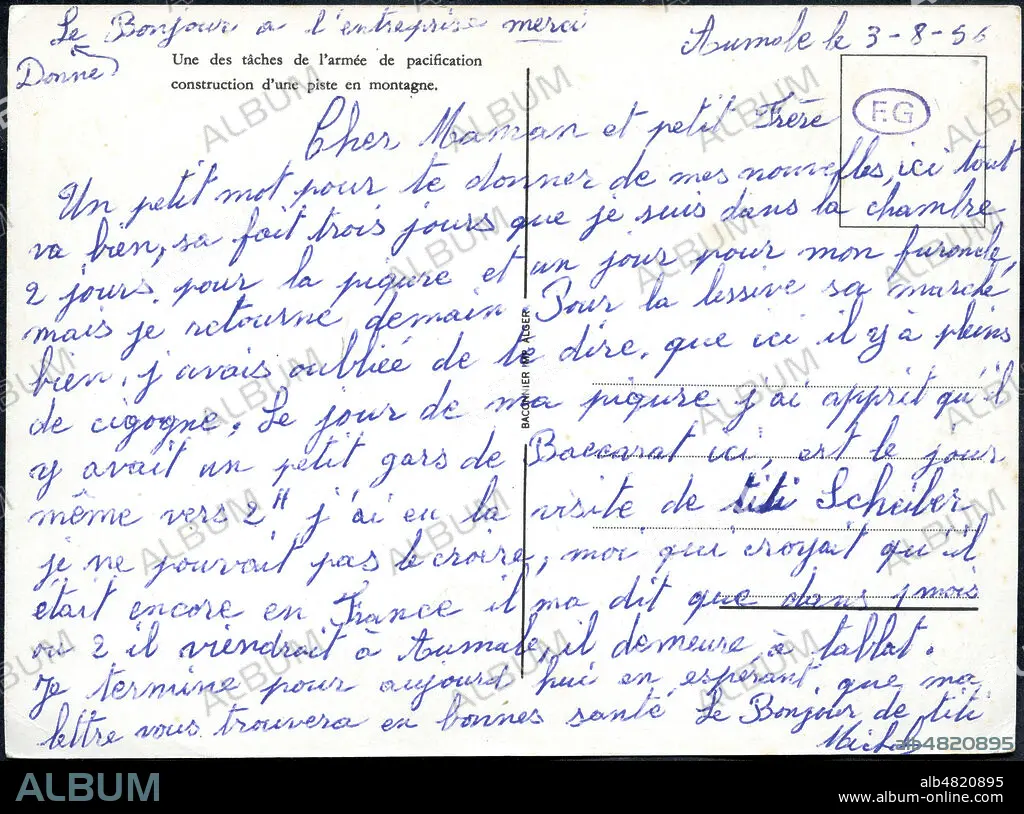 Le Bonjour a l'entreprise merci
Donne
Aumale le 3-8-56
Une des tâches de l'armée de pacification
construction d'une piste en montagne.
F.G
Cher Maman et petit Frère
Un petit mot pour te donner de mes nouvelles, ici tout
va bien, sa fait trois jours que je suis dans la chambre
2 jours pour la piqure et un jour pour mon furoncle,
mais je retourne demain. Pour la lessive sa marche
bien, j'avais oubliée de te dire, que ici il y à pleins
de cigogne. Le jour de ma piqure j'ai apprit qu'il
y avait un petit gars de Baccarat ici, est le jour
même vers 2H j'ai eu la visite de titi Scheiber
je ne pouvait pas le croire, moi qui croyait qu'il
était encore en France il ma dit que dans 1 mois
ou 2 il viendrait à Aumale, il demeure à tablat.
Je termine pour aujourd'hui en esperant que ma
lettre vous trouvera en bonnes santé Le Bonjour de titi
Michel
BACONNIER IMP. ALGER
ALBUM
alb4820895
alb4820895
www.album-online.com